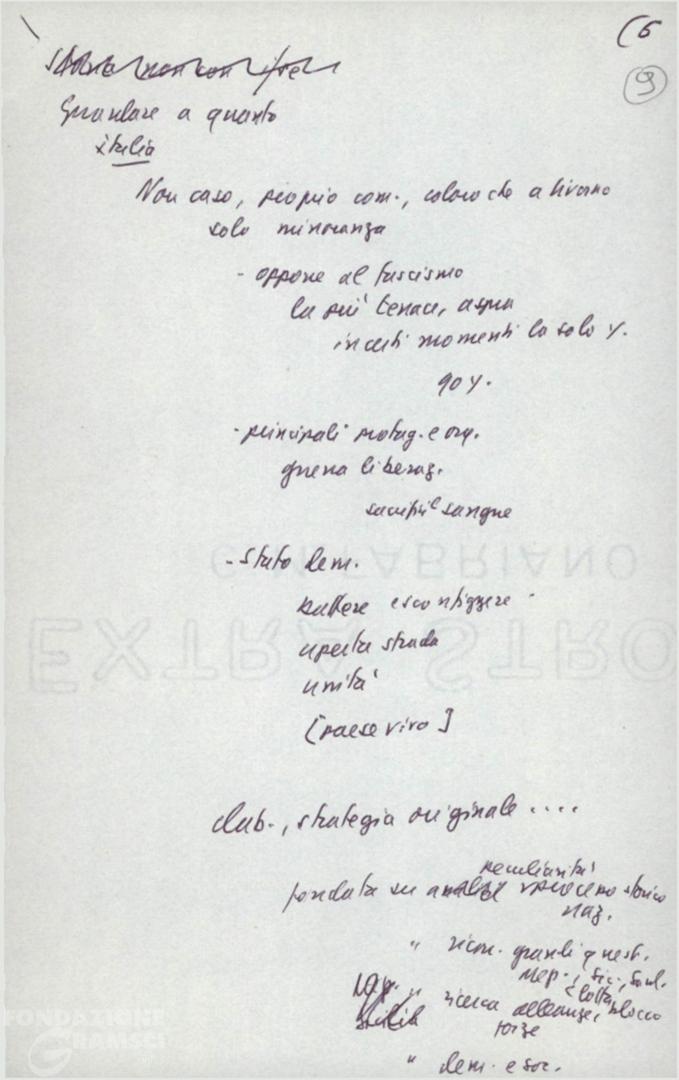 (6
9
Guardare a quanto
italia
Non caso, proprio com., coloro che a livorno
solo minoranza
- oppone al fascismo
la più tenace, aspra
in certi momenti la sola
- principali protag. e org.
guerra liberaz.
sangue
- Stato dem.
battere e sconfiggere
aperta strada
unità
[paese vivo]
elab., strategia originale ....
peculiarità
fondata su processo storico
naz.
" ricon. grandi quest.
" ricerca alleanze, blocco
forze
" dem. e soc.
EXTRA STRO
C.M. FABRIANO
FONDAZIONE
GRAMSCI